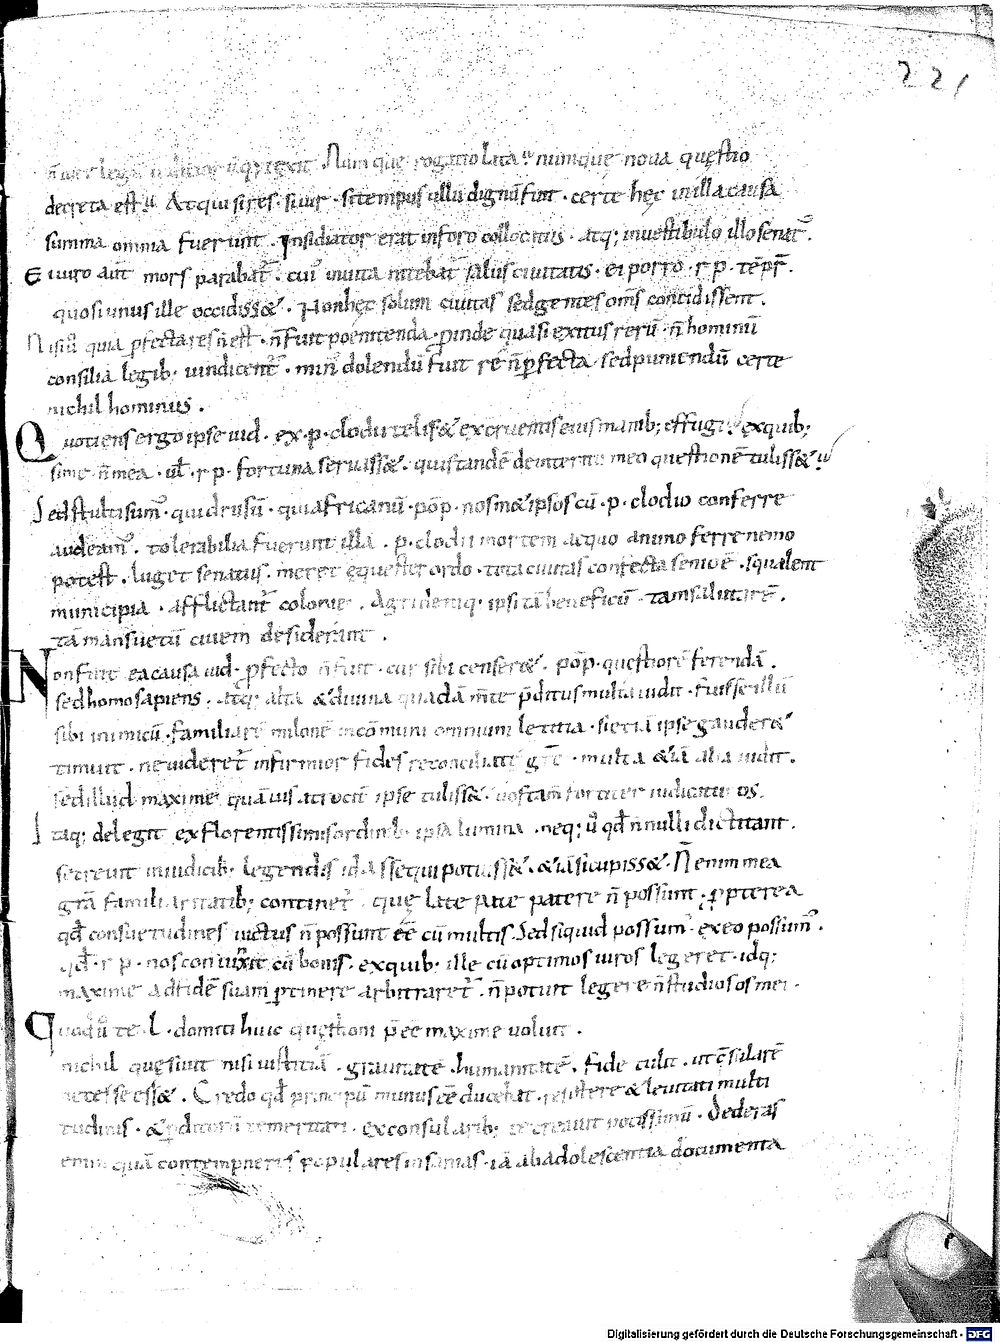 221
Num que rogatio lata ÷ numque noua questio
decreta est ÷ Atqui si res · si uir · si tempus ullu dignū fuit · certe hęc in illa causa
summa omnia fuerunt . Insidiator erat in foro collocatus · atq; in uestibulo illo senat᷒ .
E i uiro aut mors parabat᷒ . cui᷒ in uita nitebat᷒ salus ciuitatis · ei porro · r p · tēpr̄ .
quo si unus ille occidiss& · Non hęc solum ciuitas sed gentes oms concidissent .
N isiū quia pfecta res ñ est · ñ fuit poenitenda · pinde quasi exitus rerū · ñ hominū
consilia legib; uindicent᷒ · min᷒ dolendū fuit re ñ pfecta · sed puniendū certe
nichil hominus .
Quotiens ergo ipse uid · ex · p · clodii telis & ex cruentis eius manib; effugi · ex quib;
si me · ñ mea · uł · r p · fortuna seruass& · quis tandē de interitu meo questionē tuliss& ÷
Sed stulti sum᷒ · qui drusū · qui africanū · pōp · nosm& ipsos cū · p · clodio conferre
audeam᷒ . tolerabilia fuerunt illa . p . clodii mortem aequo animo ferre nemo
potest . luget senatus . meret equester ordo · tota ciuitas confecta senio ē · squalent
municipia · afflictant᷒ colonie . Agri deniq; ipsi tā beneficū · tam salutarē .
tā mansuetū ciuem desiderant .
Non fuit ea causa iud · pfecto ñ fuit · cur sibi censer& · pōp · questionē ferendā .
sed homo sapiens . atq; alta & diuina quadā m̄te p̄ditus multa uidit · fuisse illū
sibi inimicū · familiarē milonē in cōmuni omnium letitia · si etiā ipse gauder&
timuit · ne uideret᷒ infirmior fides reconciliate gr̄e · multa & iā alia uidit .
sed illud maxime quāuis atrocit ipse tuliss& · uos tam̄ fortiter iudicaturos .
Itaq; delegit ex florentissimis ordinib; ipsa lumina . neq; ū qđ nonnulli dictitant .
secreuit in iudicib; legendis id assequi potuiss& · &iā si cupiss& · N̄ enim mea
gr̄a familiaritatib; continet᷒ que late pate patere ñ possunt ; ppterea
qđ consuetudines uictus ñ possunt ēē cū multis . Sed siquid possum᷒ · ex eo possum᷒ .
qđ · r p · nos coniūxit cū bonis · ex quib; ille cū optimos uiros legeret · idq;
maxime ad fidē suam ptinere arbitraret᷒ . ñ potuit legere ñ studiosos mei ·
Quod ū te · L · domiti huic questioni p̄ēē maxime uoluit .
nichil quesiuit nisi iustitiā · grauitatē · humanitatē . fidē tulit . ut c̄sularē
necesse ess& . Credo qđ principū munus ēē ducebat . resistere & leuitati multi
tudinis · & pditorū temeritati · ex consularib; te creauit potissimū · Dederas
enim quā contempneres populares insanias · iā ab adolescentia documenta
Digitalisierung gefördert durch die Deutsche Forschungsgemeinschaft - DFG